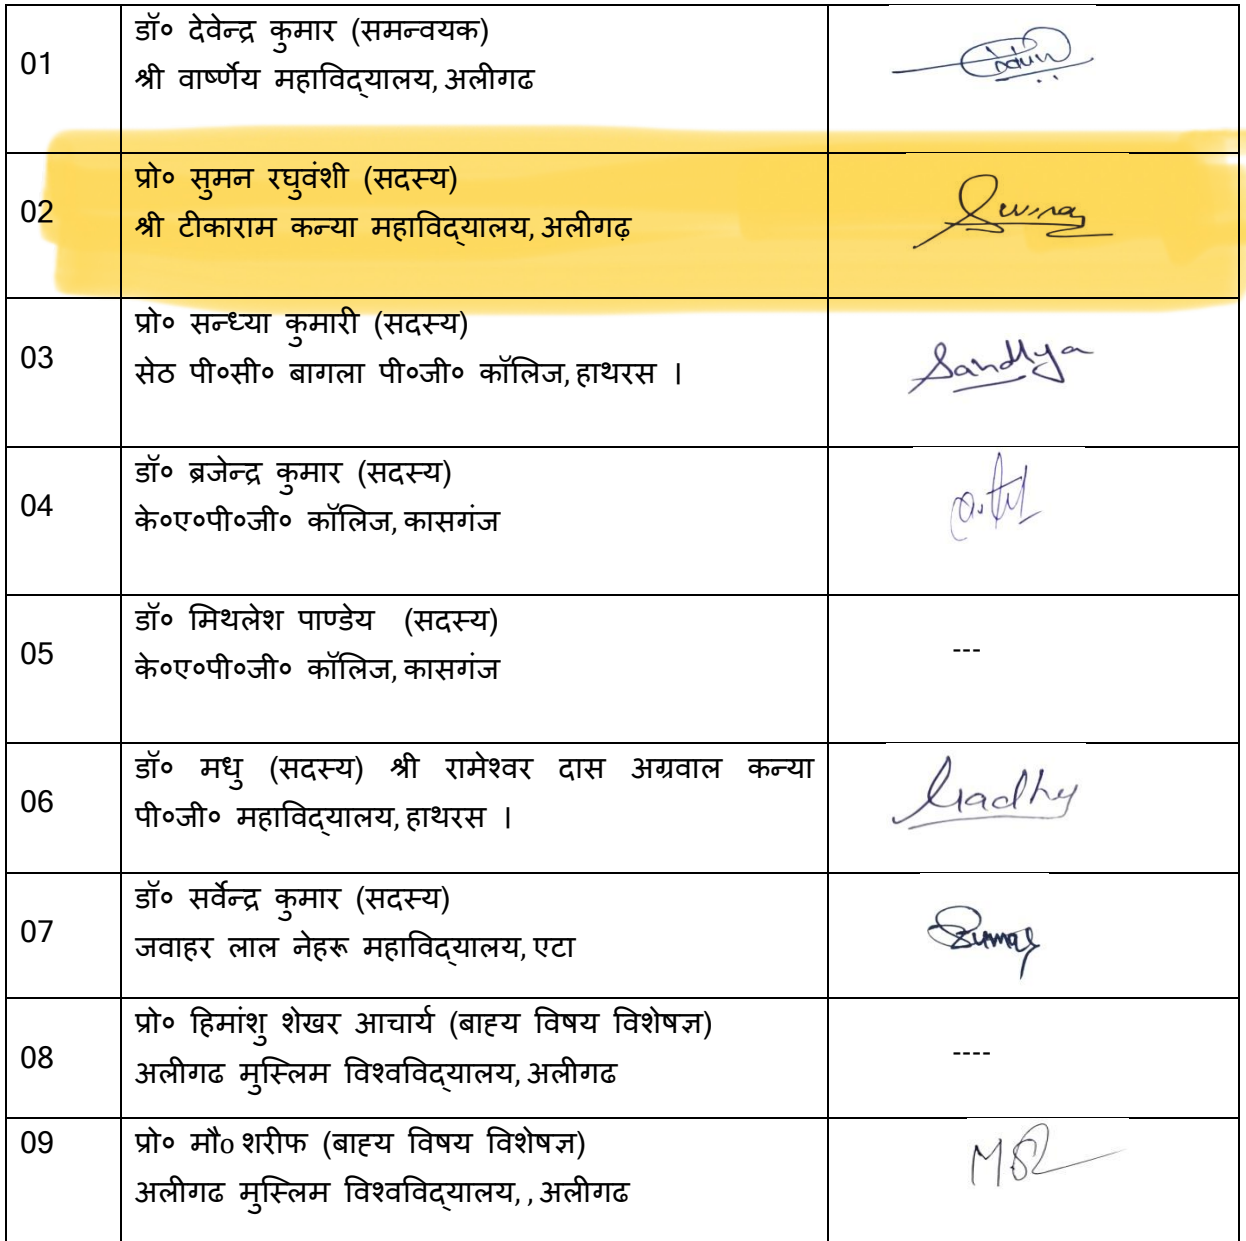 01
डॉ० देवेन्द्र कुमार (समन्वयक)
श्री वार्ष्णेय महाविद्यालय, अलीगढ
02
प्रो० सुमन रघुवंशी (सदस्य)
श्री टीकाराम कन्या महाविद्यालय, अलीगढ़
03
प्रो० सन्ध्या कुमारी (सदस्य)
सेठ पी०सी० बागला पी०जी० कॉलिज, हाथरस ।
Sandhya
04
डॉ० ब्रजेन्द्र कुमार (सदस्य)
के०ए०पी०जी० कॉलिज, कासगंज
05
डॉ० मिथलेश पाण्डेय (सदस्य)
के०ए०पी०जी० कॉलिज, कासगंज
---
06
डॉ० मधु (सदस्य) श्री रामेश्वर दास अग्रवाल कन्या
पी०जी० महाविद्यालय, हाथरस ।
07
डॉ० सर्वेन्द्र कुमार (सदस्य)
जवाहर लाल नेहरू महाविद्यालय, एटा
08
प्रो० हिमांशु शेखर आचार्य (बाह्य विषय विशेषज्ञ)
अलीगढ मुस्लिम विश्वविद्यालय, अलीगढ
----
09
प्रो० मौ0 शरीफ (बाह्य विषय विशेषज्ञ)
अलीगढ मुस्लिम विश्वविद्यालय, , अलीगढ